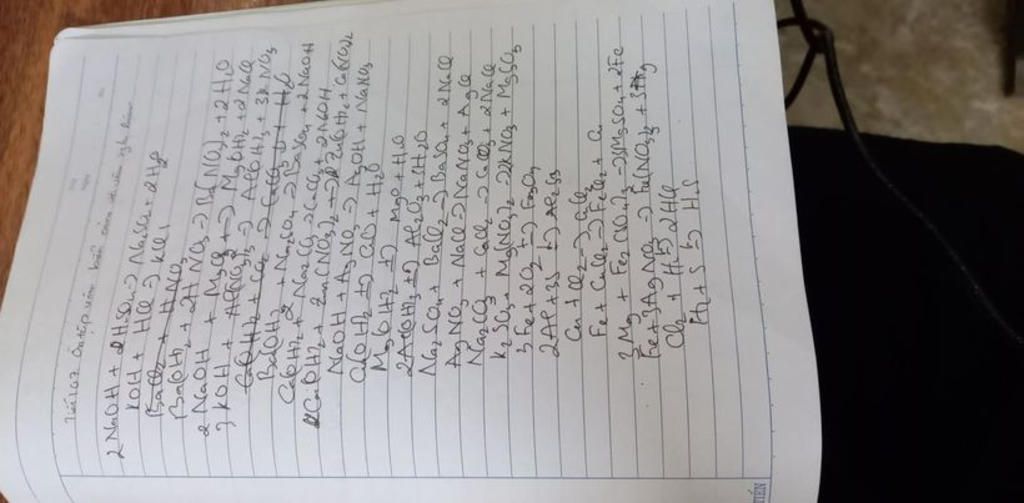 2 NaOH + 2H2SO4 → Na2SO4 + 2H2O
KOH + HCl → KCl
BaCl2 + HNO3
Ba(OH)2 + 2HNO3 → Ba(NO3)2 + 2H2O
2 NaOH + MgCl2 → Mg(OH)2 + 2NaCl
3 KOH + Al(NO3)3 → Al(OH)3 + 3KNO3
Ca(OH)2 + CO2 → CaCO3 + H2O
Ba(OH)2 + Na2SO4 → BaSO4 + 2NaOH
Ca(OH)2 + Na2CO3 → CaCO3 + 2NaOH
Ca(OH)2 + Zn(NO3)2 → Zn(OH)2 + Ca(NO3)2
NaOH + AgNO3 → AgOH + NaNO3
Ca(OH)2 → CaO + H2O
Mg(OH)2 → MgO + H2O
2Al(OH)3 → Al2O3 + 3H2O
Na2SO4 + BaCl2 → BaSO4 + 2NaCl
AgNO3 + NaCl → NaNO3 + AgCl
Na2CO3 + CaCl2 → CaCO3 + 2NaCl
K2SO3 + Mg(NO3)2 → 2KNO3 + MgSO3
3Fe + 2O2 → Fe3O4
2Al + 3S → Al2S3
Cu + Cl2 → CuCl2
Fe + CuCl2 → FeCl2 + Cu
3Mg + Fe2(SO4)3 → 3MgSO4 + 2Fe
Fe + 3AgNO3 → Fe(NO3)3 + 3Ag
Cl2 + H2 → 2HCl
H2 + S → H2S